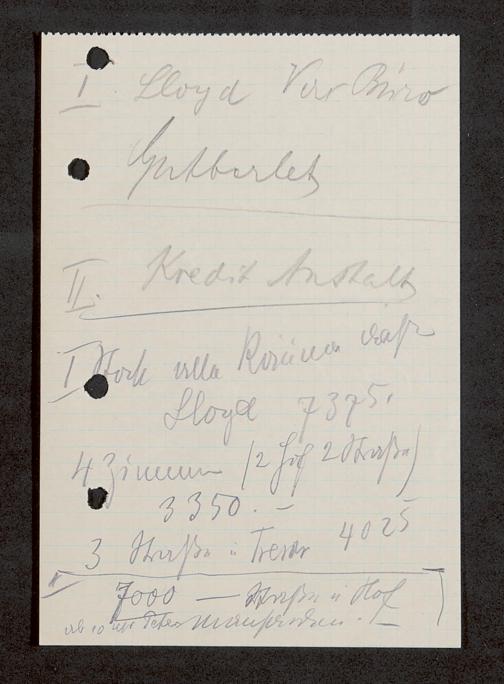 I. Lloyd Ver Büro
Gutberlet
II. Kredit Anstalt
I Stock alle Räume
Lloyd 7375.
4 Zimmer (2 Hof 2 Straße)
3350.-
4025
3 Straße u Tresor
7000 — Straße u Hof
ab 10 Uhr